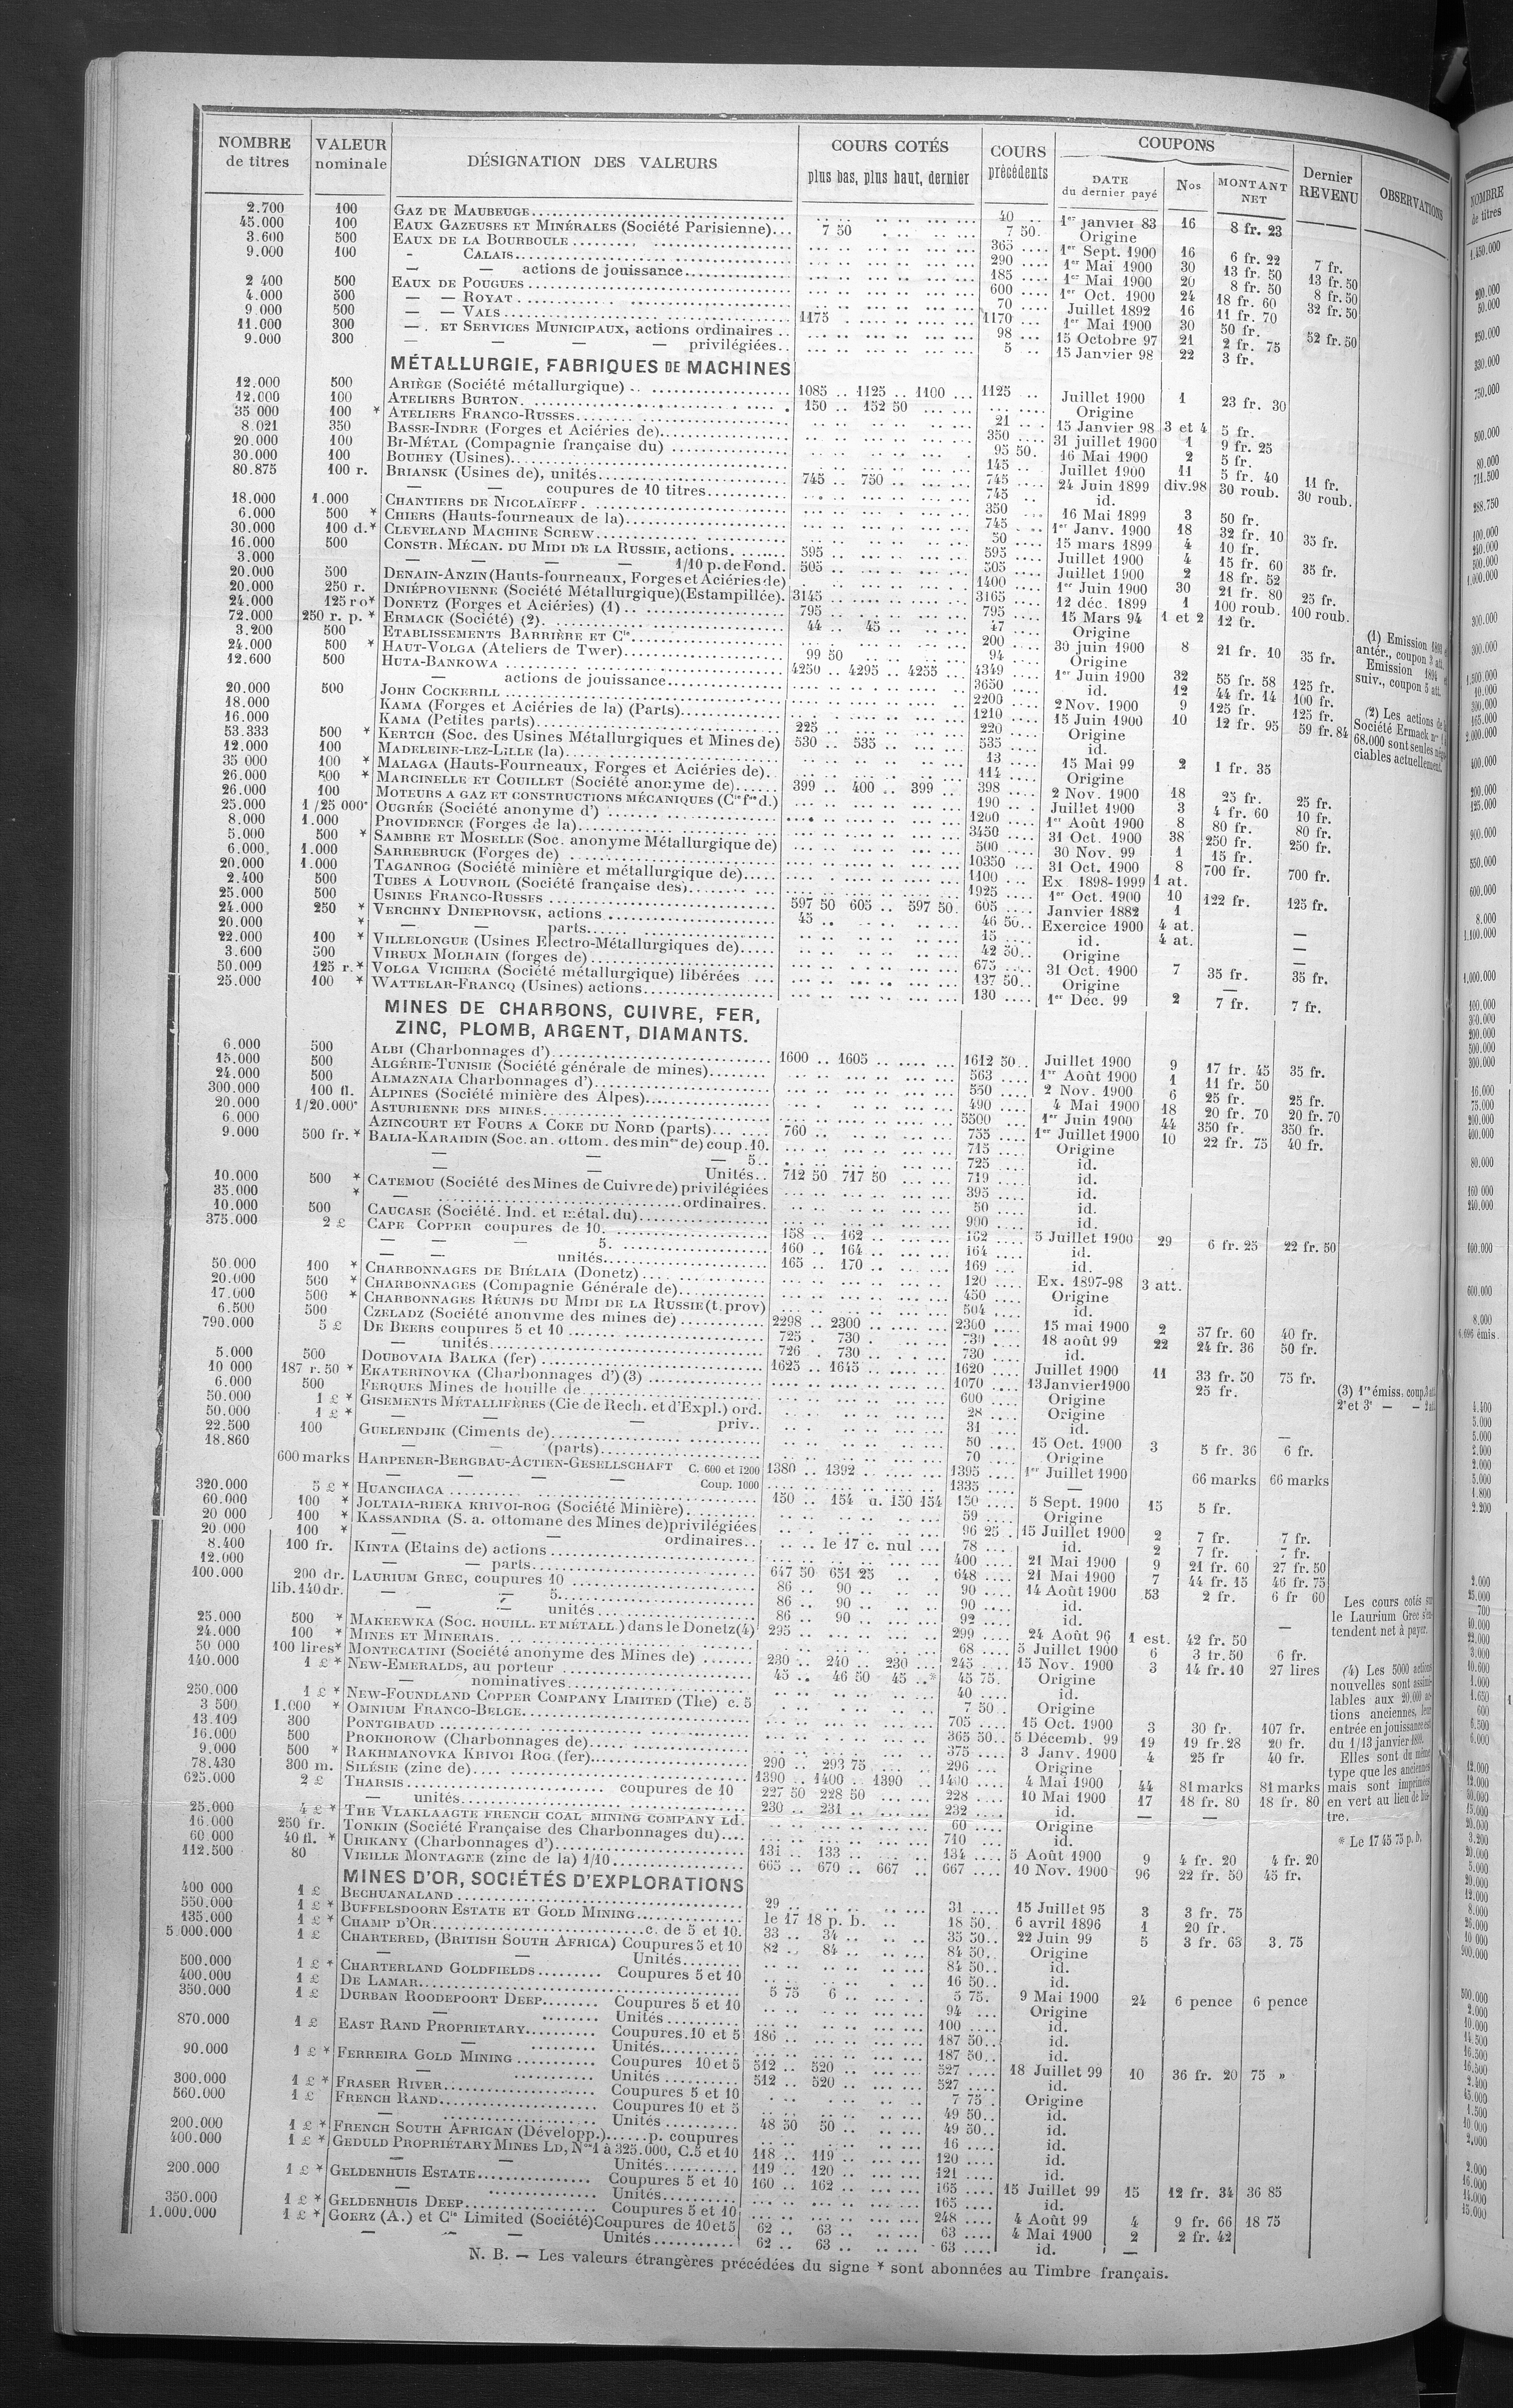 NOMBRE de titres | VALEUR nominale | DÉSIGNATION DES VALEURS | COURS COTÉS plus bas, plus haut, dernier | COURS précédents | COUPONS DATE du dernier payé | Nos | MONTANT NET | Dernier REVENU | OBSERVATIONS
2.700 100 GAZ DE MAUBEUGE 40 1er janvier 83 16 8 fr. 23
45.000 100 EAUX GAZEUSES ET MINÉRALES (Société Parisienne) 7 50 7 50 Origine
3.600 500 EAUX DE LA BOURBOULE 365 1er Sept. 1900 16 6 fr. 22 7 fr.
9.000 100 - CALAIS 290 1er Mai 1900 30 13 fr. 50 13 fr. 50
— — actions de jouissance 185 1er Mai 1900 20 8 fr. 50 8 fr. 50
2 400 500 EAUX DE POUGUES 600 1er Oct. 1900 24 18 fr. 60 32 fr. 50
4.000 500 — — ROYAT 70 Juillet 1892 16 11 fr. 70
9.000 500 — — VALS 1175 1170 1er Mai 1900 30 50 fr. 52 fr. 50
11.000 300 — ET SERVICES MUNICIPAUX, actions ordinaires 98 15 Octobre 97 21 2 fr. 75
9.000 300 — — — — privilégiées 5 15 Janvier 98 22 3 fr.
MÉTALLURGIE, FABRIQUES DE MACHINES
12.000 500 ARIÈGE (Société métallurgique) 1085 1125 1100 1125 Juillet 1900 1 23 fr. 30
12.000 100 ATELIERS BURTON 150 152 50 Origine
35 000 100 * ATELIERS FRANCO-RUSSES 21 15 Janvier 98 3 et 4 5 fr.
8.021 350 BASSE-INDRE (Forges et Aciéries de) 350 31 juillet 1900 1 9 fr. 25
20.000 100 BI-MÉTAL (Compagnie française du) 95 50 16 Mai 1900 2 5 fr.
30.000 100 BOUHEY (Usines) 145 Juillet 1900 11 5 fr. 40 11 fr.
80.875 100 r. BRIANSK (Usines de), unités 745 750 745 24 Juin 1899 div.98 30 roub. 30 roub.
— — coupures de 10 titres 745 id.
18.000 1.000 CHANTIERS DE NICOLAÏEFF 350 16 Mai 1899 3 50 fr.
6.000 500 * CHIERS (Hauts-fourneaux de la) 745 1er Janv. 1900 18 32 fr. 10 35 fr.
30.000 100 d.* CLEVELAND MACHINE SCREW 50 15 mars 1899 4 10 fr.
16.000 500 CONSTR. MÉCAN. DU MIDI DE LA RUSSIE, actions 595 595 Juillet 1900 4 15 fr. 60 35 fr.
3.000 — — — — 1/10 p. de Fond. 505 505 Juillet 1900 2 18 fr. 52
20.000 500 DENAIN-ANZIN (Hauts-fourneaux, Forges et Aciéries de) 1400 1er Juin 1900 30 21 fr. 80 25 fr.
20.000 250 r. DNIÉPROVIENNE (Société Métallurgique)(Estampillée) 3145 3165 12 déc. 1899 1 100 roub. 100 roub.
24.000 125 ro* DONETZ (Forges et Aciéries) (1) 795 795 15 Mars 94 1 et 2 12 fr.
72.000 250 r. p. * ERMACK (Société) (2) 44 45 47 Origine
3.200 500 ETABLISSEMENTS BARRIÈRE ET Cie 200 30 juin 1900 8 21 fr. 10 35 fr.
24.000 500 * HAUT-VOLGA (Ateliers de Twer) 99 50 94 Origine
12.600 500 HUTA-BANKOWA 4250 4295 4255 4349 1er Juin 1900 32 55 fr. 58 125 fr.
— actions de jouissance 3650 id. 12 44 fr. 14 100 fr.
20.000 500 JOHN COCKERILL 2200 2 Nov. 1900 9 125 fr. 125 fr.
18.000 KAMA (Forges et Aciéries de la) (Parts) 1210 15 Juin 1900 10 12 fr. 95 59 fr. 84
16.000 KAMA (Petites parts) 225 220 Origine
53.333 500 * KERTCH (Soc. des Usines Métallurgiques et Mines de) 530 535 535 id.
12.000 100 MADELEINE-LEZ-LILLE (la) 13 15 Mai 99 2 1 fr. 35
35 000 100 * MALAGA (Hauts-Fourneaux, Forges et Aciéries de) 114 Origine
26.000 500 * MARCINELLE ET COUILLET (Société anonyme de) 399 400 399 398 2 Nov. 1900 18 25 fr. 25 fr.
26.000 100 MOTEURS A GAZ ET CONSTRUCTIONS MÉCANIQUES (Cie fse d.) 190 Juillet 1900 3 4 fr. 60 10 fr.
25.000 1/25 000e OUGRÉE (Société anonyme d') 1200 1er Août 1900 8 80 fr. 80 fr.
8.000 1.000 PROVIDENCE (Forges de la) 3450 31 Oct. 1900 38 250 fr. 250 fr.
5.000 500 * SAMBRE ET MOSELLE (Soc. anonyme Métallurgique de) 500 30 Nov. 99 1 15 fr.
6.000 1.000 SARREBRUCK (Forges de) 10350 31 Oct. 1900 8 700 fr. 700 fr.
20.000 1.000 TAGANROG (Société minière et métallurgique de) 1100 Ex 1898-1999 1 at.
2.400 500 TUBES A LOUVROIL (Société française des) 1925 1er Oct. 1900 10 122 fr. 125 fr.
25.000 500 USINES FRANCO-RUSSES 597 50 605 597 50 605 Janvier 1882 1
24.000 250 * VERCHNY DNIEPROVSK, actions 45 46 50 Exercice 1900 4 at. —
20.000 * — — parts 15 id. 4 at. —
22.000 100 * VILLELONGUE (Usines Electro-Métallurgiques de) 42 50 Origine —
3.600 500 VIREUX MOLHAIN (forges de) 675 31 Oct. 1900 7 35 fr. 35 fr.
50.000 125 r.* VOLGA VICHERA (Société métallurgique) libérées 137 50 Origine —
25.000 100 * WATTELAR-FRANCQ (Usines) actions 130 1er Déc. 99 2 7 fr. 7 fr.
MINES DE CHARBONS, CUIVRE, FER,
ZINC, PLOMB, ARGENT, DIAMANTS.
6.000 500 ALBI (Charbonnages d') 1600 1605 1612 50 Juillet 1900 9 17 fr. 45 35 fr.
15.000 500 ALGÉRIE-TUNISIE (Société générale de mines) 563 1er Août 1900 1 11 fr. 50
24.000 500 ALMAZNAIA Charbonnages d') 550 2 Nov. 1900 6 25 fr. 25 fr.
300.000 100 fl. ALPINES (Société minière des Alpes) 490 4 Mai 1900 18 20 fr. 70 20 fr. 70
20.000 1/20.000e ASTURIENNE DES MINES 5500 1er Juin 1900 44 350 fr. 350 fr.
6.000 AZINCOURT ET FOURS A COKE DU NORD (parts) 760 755 1er Juillet 1900 10 22 fr. 75 40 fr.
9.000 500 fr. * BALIA-KARAIDIN (Soc. an. ottom. des mines de) coup. 10. 715 Origine
— — — 5 725 id.
— Unités 712 50 717 50 719 id.
10.000 500 * CATEMOU (Société des Mines de Cuivre de) privilégiées 395 id.
35.000 * — ordinaires. 50 id.
10.000 500 CAUCASE (Société. Ind. et métal. du) 900 id.
375.000 2 £ CAPE COPPER coupures de 10. 158 162 162 5 Juillet 1900 29 6 fr. 25 22 fr. 50
— — — 5. 160 164 164 id.
— — unités 165 170 169 id.
50.000 100 * CHARBONNAGES DE BIÉLAIA (Donetz) 120 Ex. 1897-98 3 att.
20.000 500 * CHARBONNAGES (Compagnie Générale de) 450 Origine
17.000 500 * CHARBONNAGES RÉUNIS DU MIDI DE LA RUSSIE (t. prov) 504 id.
6.500 500 CZELADZ (Société anonyme des mines de) 2298 2300 2300 15 mai 1900 2 37 fr. 60 40 fr.
790.000 5 £ DE BEERS coupures 5 et 10 725 730 730 18 août 99 22 24 fr. 36 50 fr.
— unités 726 730 730 id.
5.000 500 DOUBOVAIA BALKA (fer) 1625 1645 1620 Juillet 1900 11 33 fr. 50 75 fr.
10 000 187 r. 50 * EKATERINOVKA (Charbonnages d') (3) 1070 13 Janvier 1900 25 fr.
6.000 500 FERQUES Mines de houille de 600 Origine
50.000 1 £ * GISEMENTS MÉTALLIFÈRES (Cie de Rech. et d'Expl.) ord. 28 Origine
50.000 1 £ * — — — priv. 31 id.
22.500 100 GUELENDJIK (Ciments de) 50 15 Oct. 1900 3 5 fr. 36 6 fr.
18.860 — — (parts) 70 Origine
600 marks HARPENER-BERGBAU-ACTIEN-GESELLSCHAFT C. 600 et 1200 1380 1392 1395 1er Juillet 1900 66 marks 66 marks
— — — — Coup. 1000 1335 —
320.000 5 £ * HUANCHACA 150 154 u. 150 154 150 5 Sept. 1900 15 5 fr.
60.000 100 * JOLTAIA-RIEKA KRIVOI-ROG (Société Minière) 59 Origine
20 000 100 * KASSANDRA (S. a. ottomane des Mines de) privilégiées 96 25 15 Juillet 1900 2 7 fr. 7 fr.
20.000 100 * — — ordinaires le 17 c. nul 78 id. 2 7 fr. 7 fr.
8.400 100 fr. KINTA (Etains de) actions 400 21 Mai 1900 9 21 fr. 60 27 fr. 50
12.000 — — parts 647 50 651 25 648 21 Mai 1900 7 44 fr. 15 46 fr. 75
100.000 200 dr. LAURIUM GREC, coupures 10 86 90 90 14 Août 1900 53 2 fr. 6 fr 60
lib. 140 dr. — — 5 86 90 90 id.
— — unités 86 90 92 id.
25.000 500 * MAKEEWKA (Soc. HOUILL. ET MÉTALL.) dans le Donetz (4) 295 299 24 Août 96 1 est. 42 fr. 50 —
24.000 100 * MINES ET MINERAIS 68 5 Juillet 1900 6 3 fr. 50 6 fr.
50 000 100 lires* MONTECATINI (Société anonyme des Mines de) 230 240 230 245 15 Nov. 1900 3 14 fr. 10 27 lires
140.000 1 £ * NEW-EMERALDS, au porteur 45 46 50 45 * 45 75 Origine
— nominatives 40 id.
250.000 1 £ * NEW-FOUNDLAND COPPER COMPANY LIMITED (The) c. 5 7 50 Origine
3 500 1.000 * OMNIUM FRANCO-BELGE 705 15 Oct. 1900 3 30 fr. 107 fr.
13.100 300 PONTGIBAUD 365 50 5 Décemb. 99 19 19 fr. 28 20 fr.
16.000 500 PROKHOROW (Charbonnages de) 375 3 Janv. 1900 4 25 fr 40 fr.
9.000 500 * RAKHMANOVKA KRIVOI ROG (fer) 290 293 75 296 Origine
78.430 300 m. SILÉSIE (zinc de) 1390 1400 1390 1400 4 Mai 1900 44 81 marks 81 marks
625.000 2 £ THARSIS coupures de 10 227 50 228 50 228 10 Mai 1900 17 18 fr. 80 18 fr. 80
— unités 230 231 232 id. — —
25.000 4 £ * THE VLAKLAAGTE FRENCH COAL MINING COMPANY Ld. 60 Origine
16.000 250 fr. TONKIN (Société Française des Charbonnages du) 710 id.
60 000 40 fl. * URIKANY (Charbonnages d') 131 133 134 5 Août 1900 9 4 fr. 20 4 fr. 20
112.500 80 VIEILLE MONTAGNE (zinc de la) 1/10 665 670 667 667 10 Nov. 1900 96 22 fr. 50 45 fr.
MINES D'OR, SOCIÉTÉS D'EXPLORATIONS
400 000 1 £ BECHUANALAND 29 31 15 Juillet 95 3 3 fr. 75
550.000 1 £ * BUFFELSDOORN ESTATE ET GOLD MINING le 17 18 p. b. 18 50 6 avril 1896 1 20 fr.
135.000 1 £ * CHAMP D'OR c. de 5 et 10. 33 34 35 50 22 Juin 99 5 3 fr. 63 3. 75
5.000.000 1 £ CHARTERED, (BRITISH SOUTH AFRICA) Coupures 5 et 10 82 84 84 50 Origine
— — Unités 84 50 id.
500.000 1 £ * CHARTERLAND GOLDFIELDS Coupures 5 et 10 16 50 id.
400.000 1 £ DE LAMAR 5 75 6 5 75 9 Mai 1900 24 6 pence 6 pence
350.000 1 £ DURBAN ROODEPOORT DEEP Coupures 5 et 10 94 Origine
— Unités 100 id.
870.000 1 £ EAST RAND PROPRIETARY Coupures. 10 et 5 186 187 50 id.
— Unités 187 50 id.
90.000 1 £ * FERREIRA GOLD MINING Coupures 10 et 5 512 520 527 18 Juillet 99 10 36 fr. 20 75 »
— Unités 512 520 527 id.
300.000 1 £ * FRASER RIVER Coupures 5 et 10 7 75 Origine
560.000 1 £ FRENCH RAND Coupures 10 et 5 49 50 id.
— Unités 48 50 50 49 50 id.
200.000 1 £ * FRENCH SOUTH AFRICAN (Développ.) p. coupures 16 id.
400.000 1 £ * GEDULD PROPRIÉTARY MINES LD, Nos 1 à 325.000, C. 5 et 10 118 119 120 id.
— — Unités 119 120 121 id.
200.000 1 £ * GELDENHUIS ESTATE Coupures 5 et 10 160 162 165 15 Juillet 99 15 12 fr. 34 36 85
— Unités 165 id.
350.000 1 £ * GELDENHUIS DEEP Coupures 5 et 10 248 4 Août 99 4 9 fr. 66 18 75
1.000.000 1 £ * GOERZ (A.) et Cie Limited (Société) Coupures de 10 et 5 62 63 63 4 Mai 1900 2 2 fr. 42
— — — Unités 62 63 63 id. —
(1) Emission
antér., coupon 3 att.
Emission 1894
suiv., coupon 5 att.
(2) Les actions de
Société Ermack
68.000 sont seules
ciables actuellement.
(3) 1re émiss. coup.
2e et 3e — —
Les cours cotés
le Laurium Grec
tendent net à payer.
(4) Les 5000 actions
nouvelles sont
lables aux 20.000
tions anciennes,
entrée en jouissance
du 1/13 janvier
Elles sont du même
type que les anciennes
mais sont imprimées
en vert au lieu de
tre.
* Le 17 45 75 p. b.
N. B. — Les valeurs étrangères précédées du signe * sont abonnées au Timbre français.
NOMBRE
de titres